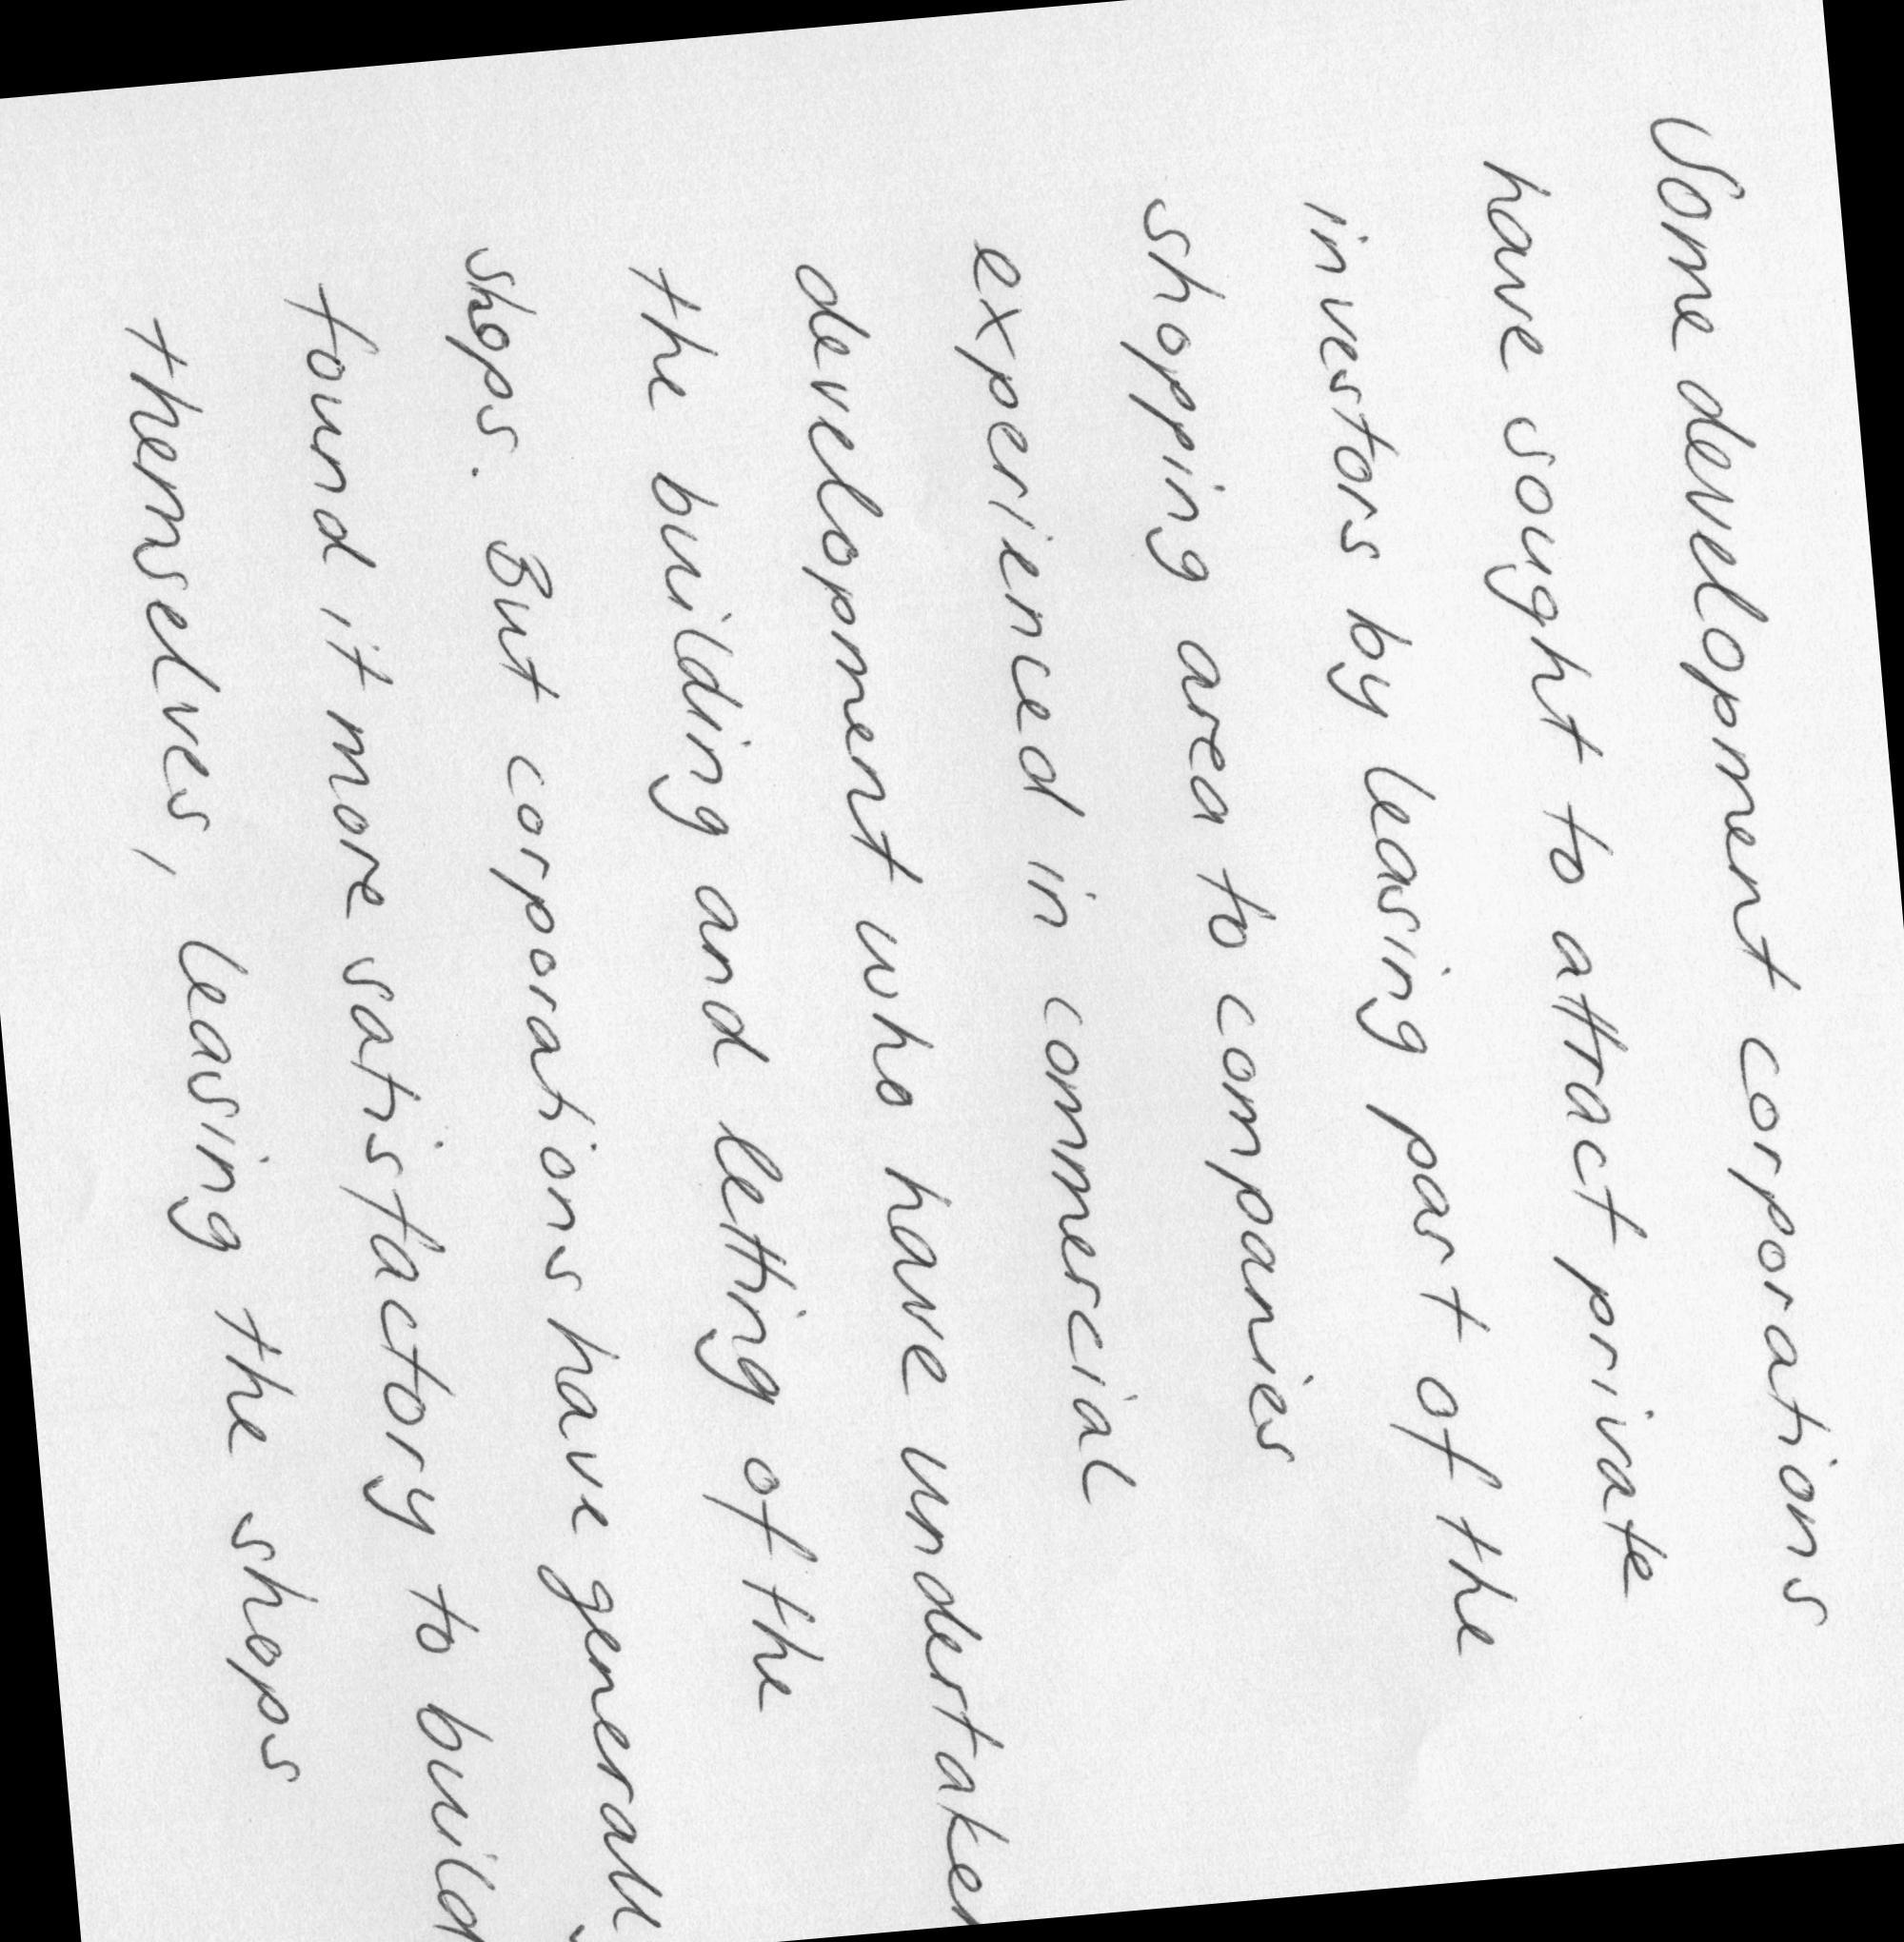 Some development corporations
have sought to attract private
investors by leasing part of the
shopping area to companies
experienced in commercial
development who have undertaken
the building and letting of the
shops. But corporations have generally
found it more satisfactory to build
themselves, leasing the shops